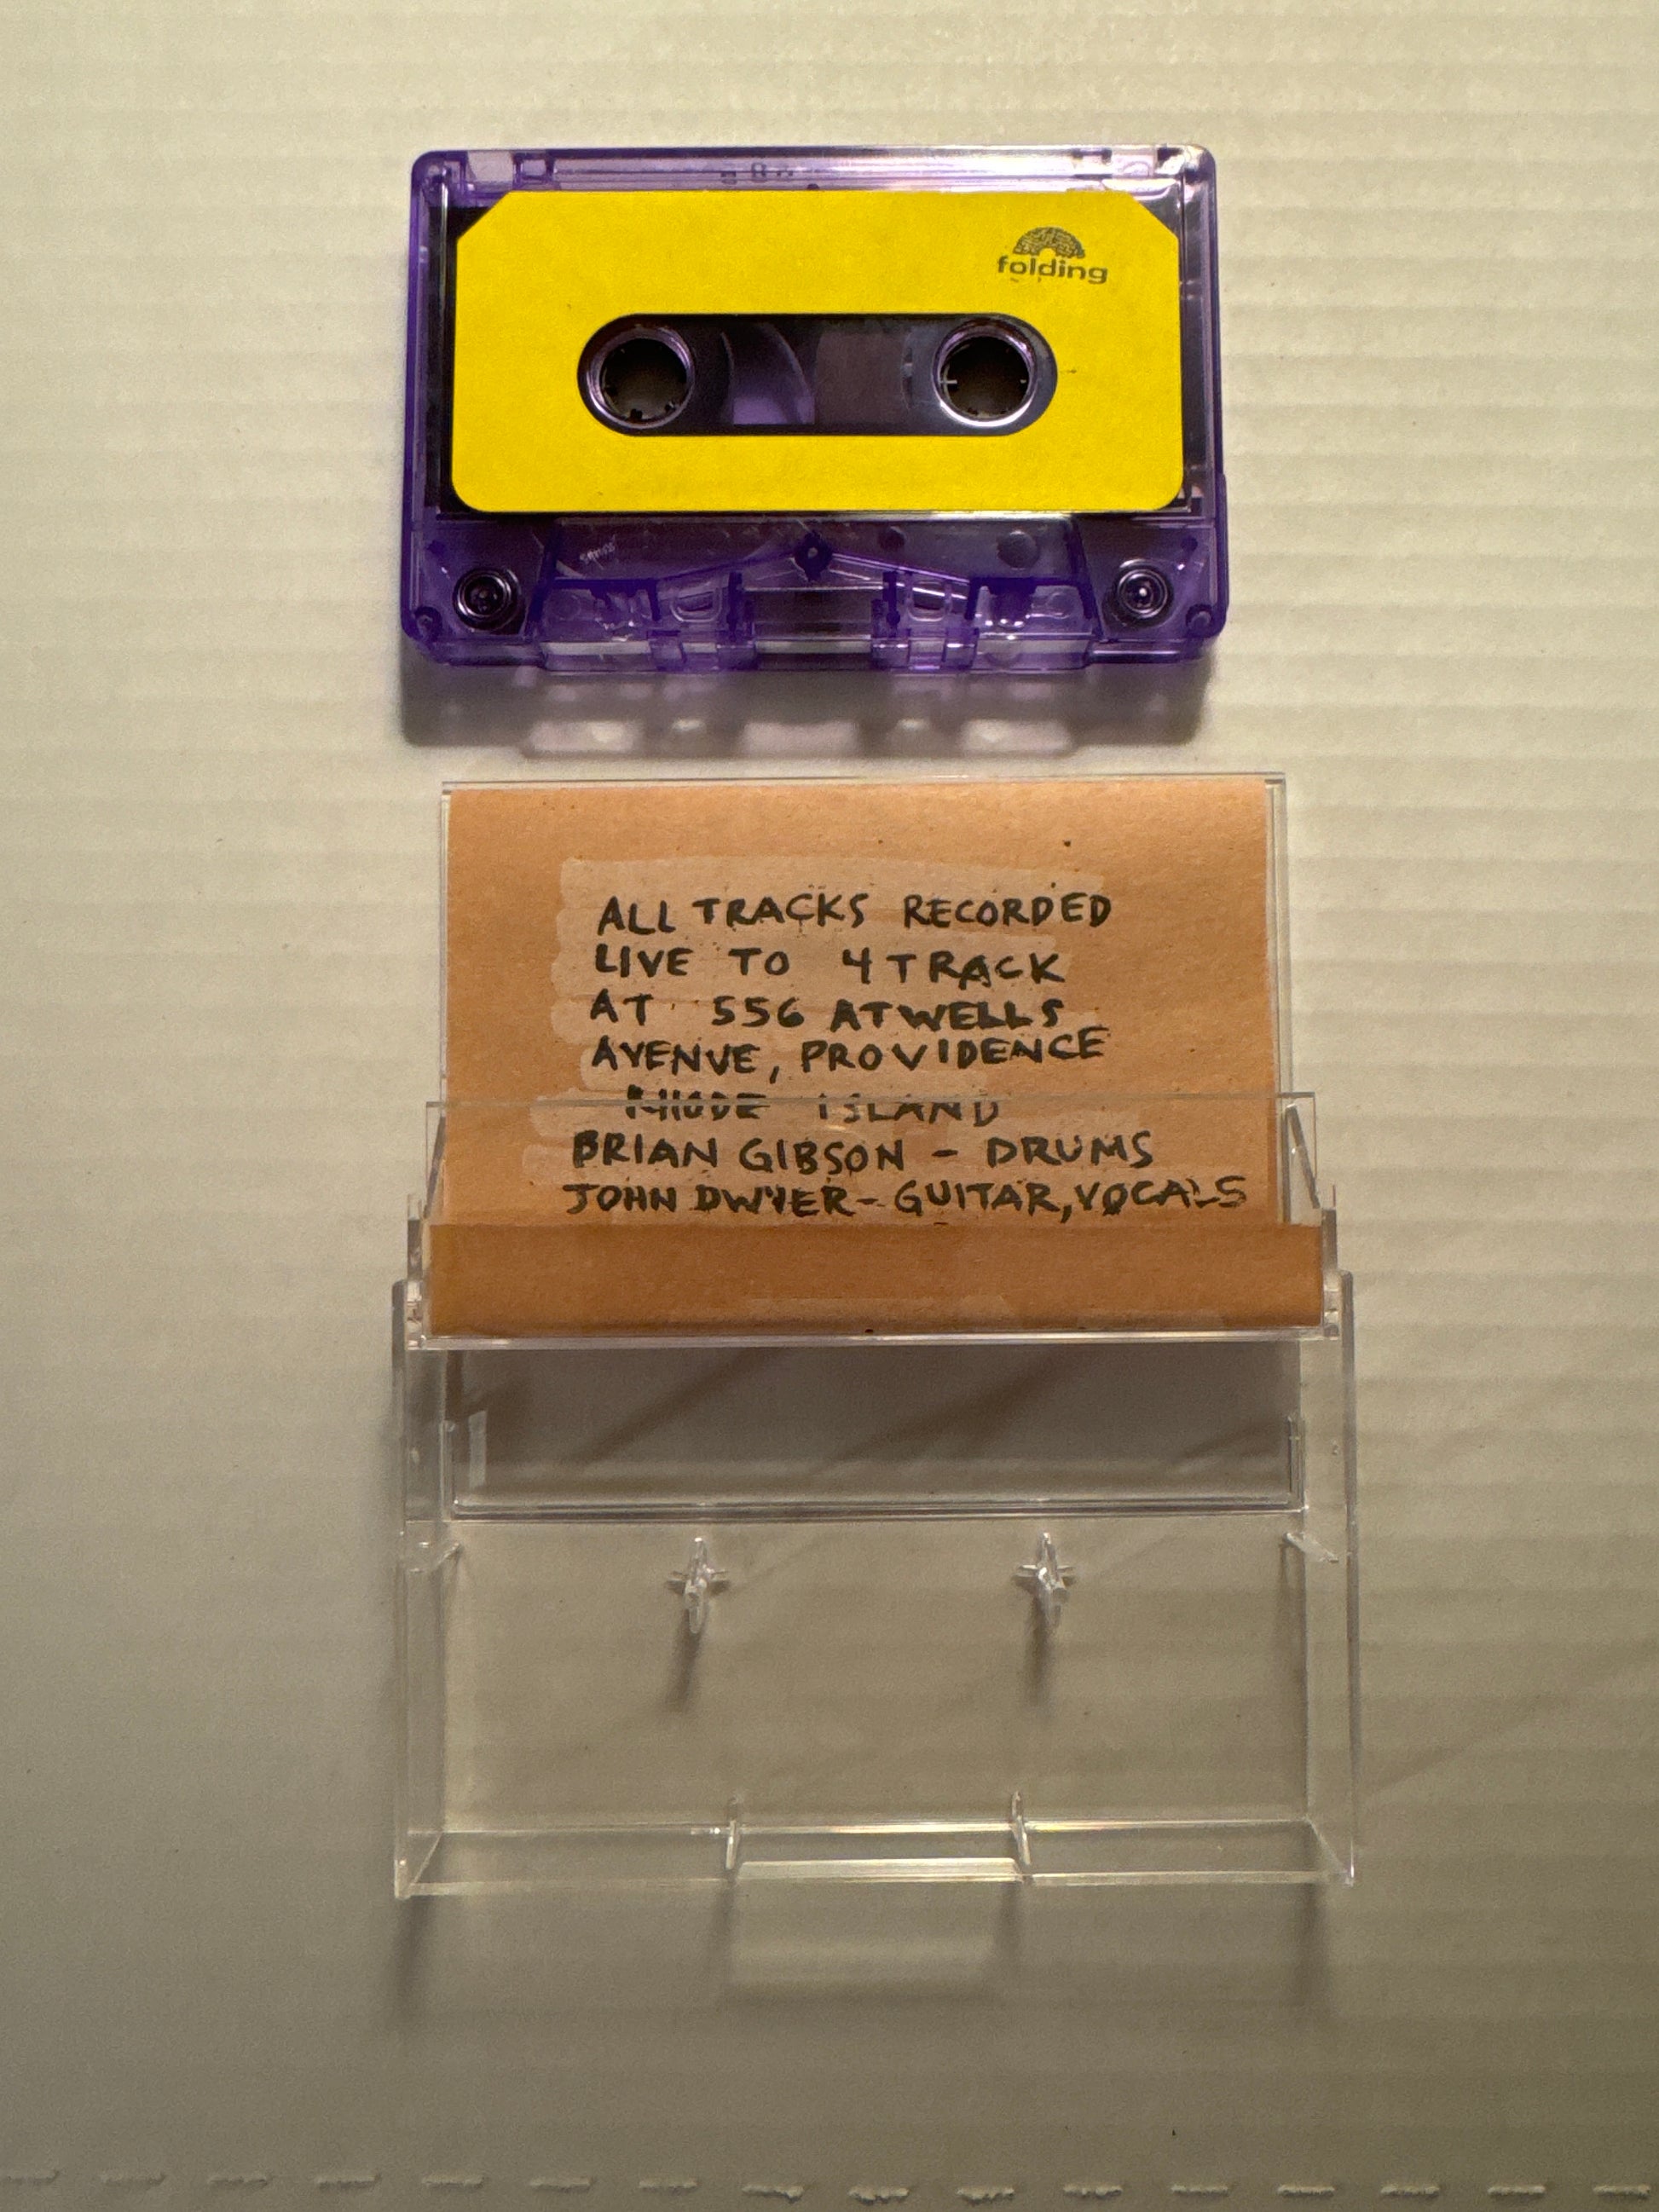 folding
ALL TRACKS RECORDED
LIVE TO 4 TRACK
AT 556 ATWELLS
AVENUE, PROVIDENCE
RHODE ISLAND
BRIAN GIBSON - DRUMS
JOHN DWYER - GUITAR, VOCALS